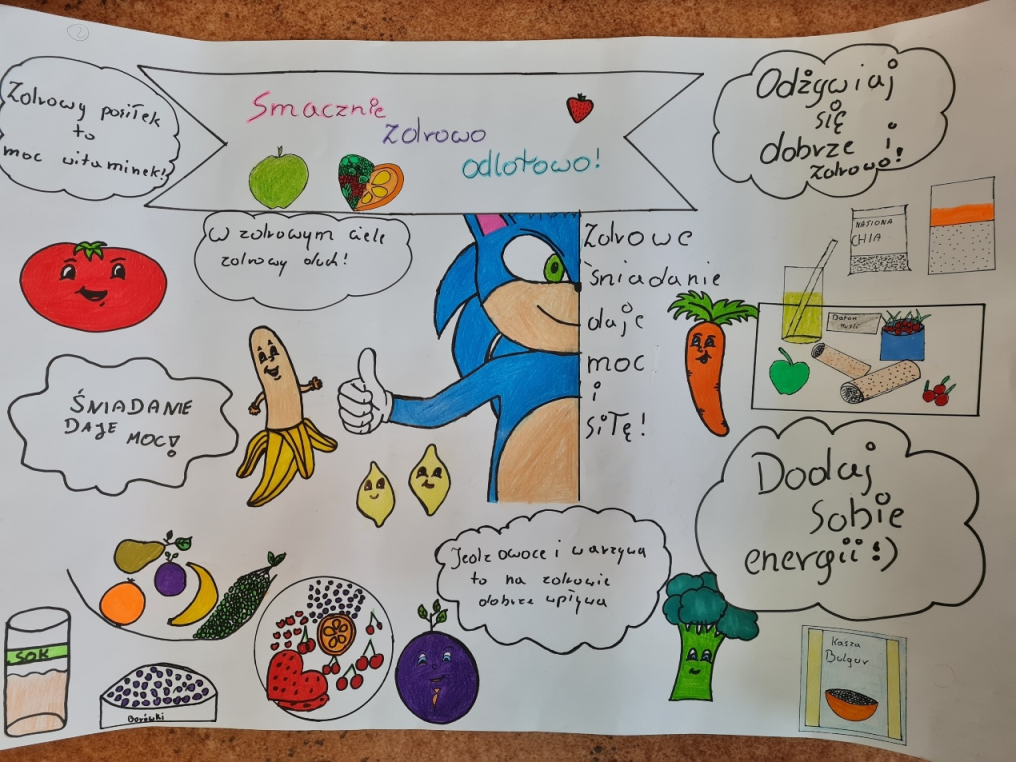 2
Zdrowy posiłek
to
moc witaminek!
Smacznie
Zdrowo
odlotowo!
Odżywiaj
się
dobrze i
Zdrowo!
W zdrowym ciele
zdrowy duch!
Zdrowe
śniadanie
daje
moc
i
siłę!
NASIONA
CHIA
Baton
Musli
ŚNIADANIE
DAJE MOC!
Dodaj
sobie
energii!:)
Jedz owoce i warzywa
to na zdrowie
dobrze wpływa
SOK
Borówki
Kasza
Bulgur